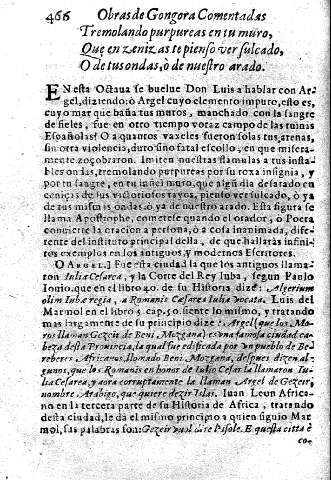 466 Obras de Gongora Comentadas
Tremolando purpureas en tu muro,
Que en zenizas te pienso ver sulcado,
O de tus ondas, ò de nuestro arado.
EN esta Octaua se buelue Don Luis a hablar con Ar-
gel, diziendo: ò Argel cuyo elemento impuro, esto es,
cuyo mar que baña tus muros, manchado con la sangre
de fieles, fue en otro tiempo voraz campo de las ruinas
Españolas! O a quantos vaxeles fueron solas tus arenas,
sin otra violencia, duro sino fatal escollo, en que misera-
mente zozobraron. Imiten nuestras flamulas a tus insta-
bles ondas, tremolando purpureas por su roxa insignia, y
por tu sangre, en tu infiel muro, que algū dia desatado en
ceniças de sus vitoriosos rayos, pienso ver sulcado, ò ya
de tus mismas ondas, ò ya de nuestro arado. Esta figura se
llama Apostrophe, comete se quando el orador, ò Poeta
conuierte la oracion a persona, ò a cosa inanimada, dife-
rente del instituto principal della, de que hallaràs infini-
tos exemplos en los antiguos, y modernos Escritores.
O ARGEL.] Fue esta ciudad la que los antiguos llama-
ron Iulia Cesarea, y la Corte del Rey Iuba, segun Paulo
Iouio, que en el libro 40. de su Historia dize: Algerium
olim Iuba regia, a Romanis Cæsarea Iulia vocata. Luis del
Marmol en el libro 5. cap. 50. siente lo mismo, y tratando
mas largamente de su principio dize: Argel (que los Mo-
ros llaman Gezeir de Beni, Mozgana) es una famosa ciudad ca-
beça desta Prouincia, la qual fue edificada por un pueblo de Be-
reberes Africanos, llamado Beni, Mozgana, despues dizen al-
gunos, que los Romanos en honor de Iulio Cesar la llamaron Iu-
lia Cesarea, y aora corruptamente la llaman Argel de Gezeir,
nombre Arabigo, que quiere dezir Islas. Iuan Leon Africa-
no en la tercera parte de su Historia de Africa, tratando
desta ciudad, le dà el mismo principio a quien siguio Mar-
mol, sus palabras son: Gezeir vuol dire Isole. E questa città è
co-